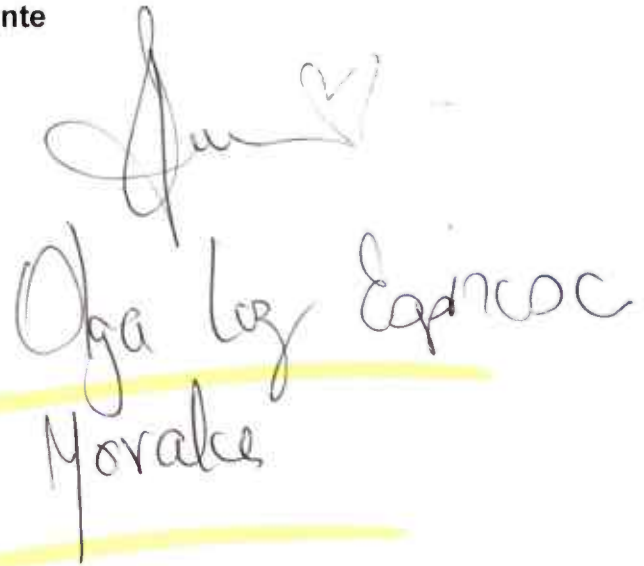 nte
Olga Luz Espinosa
Morales